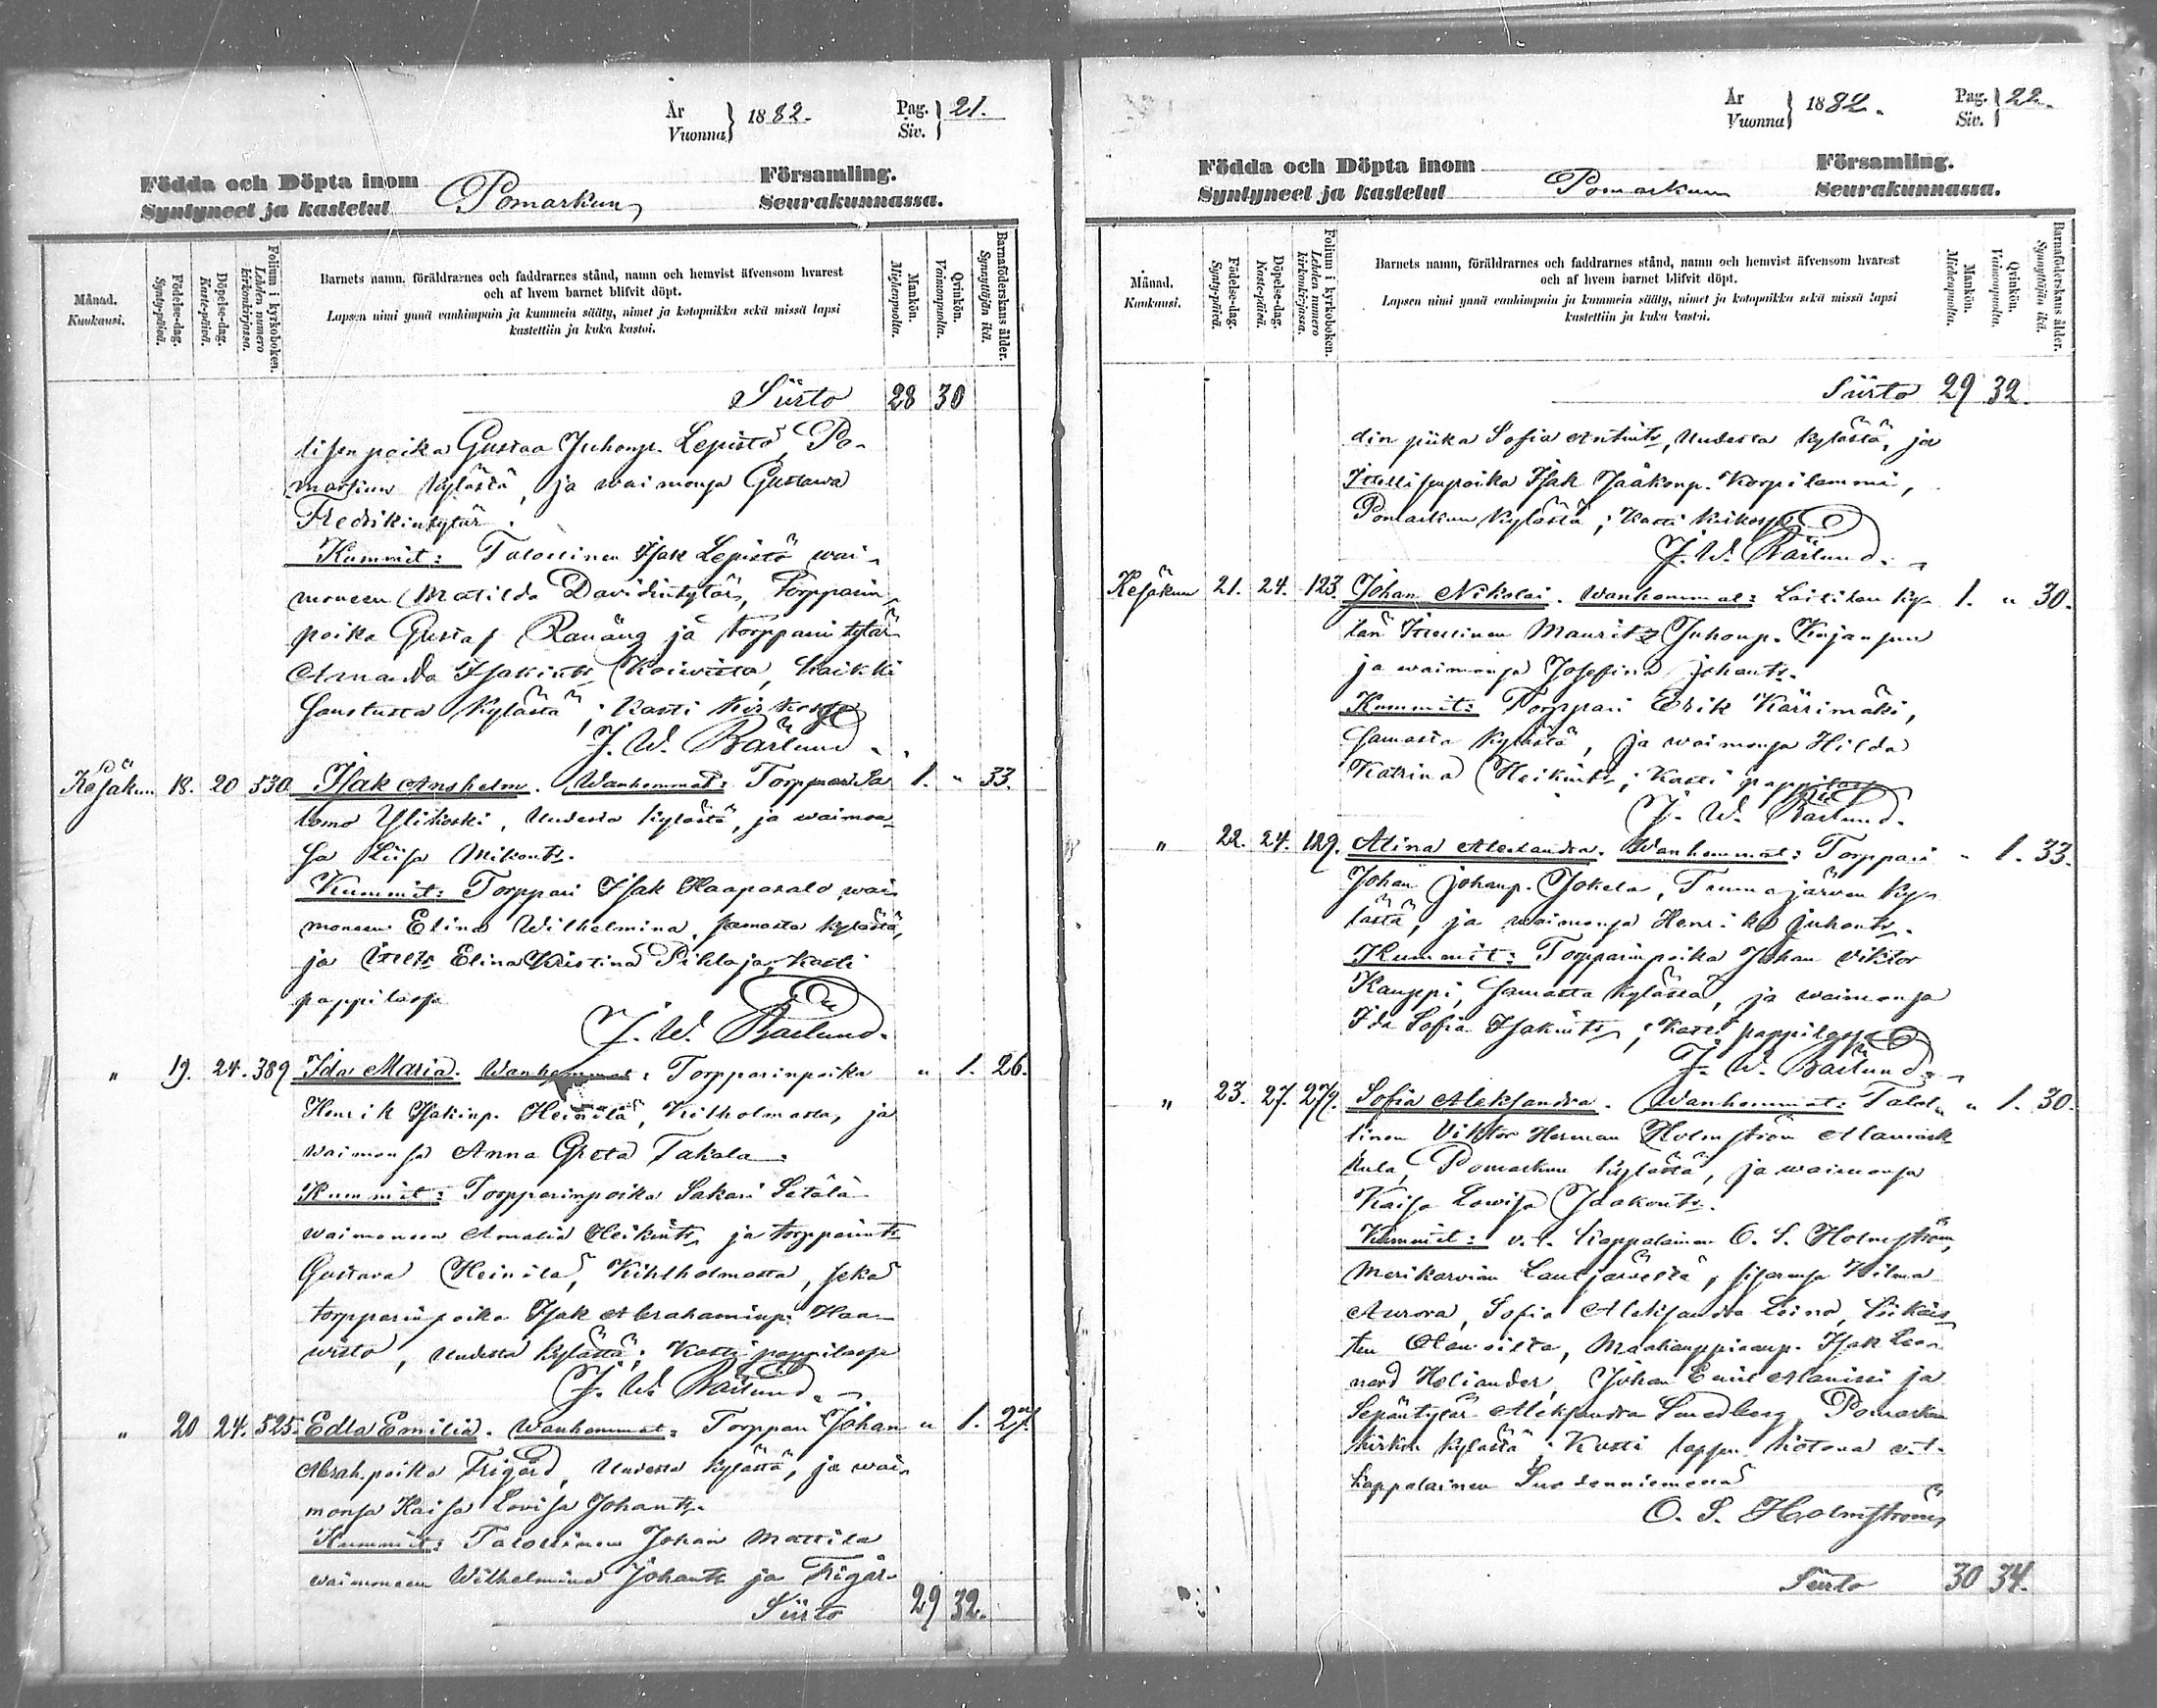 År
Vuonna} 1882.
Pag.
Siv.} 21.
Födda och Döpta inom
Syntyneet ja kastetut
Pomarkun
Församling.
Seurakunnassa.
Månad.
Kuukausi.
Födelse-dag.
Synty-päivä.
Döpelse-dag.
Kaste-päivä.
Folium i kyrkoboken.
Lehden numero
kirkonkirjassa.
Barnets namn, föräldrarnes och faddrarnes stånd, namn och hemvist äfvensom hvarest
och af hvem barnet blifvit döpt.
Lapsen nimi ynnä vanhimpain ja kummein sääty, nimet ja kotopaikka sekä missä lapsi
kastettiin ja kuka kastoi.
Mankön.
Miehenpuolta.
Qvinkön.
Vaimonpuolta.
Barnaföderskans ålder.
Synnyttäjän ikä.
Siirto 28 30
lisen poika Gustaa Juhonp. Lepistö, Po-
markun kylästä, ja waimonsa Gustawa
Fredrikintytär.
Kummit: Talollinen Isak Lepistö wai-
moneen Matilda Davidintytär, Torpparin
poika Gustaf Ranäng ja torpparin tytär
Amanda Isakints Koiwisto, kaikki
Honkusta kylästä; Kasti kirkossa
J. W. Bärlund.
Kesäkun 18. 20 530 Isak Anshelm. Wanhemmat: Torppari Sa 1. " 33.
lomo Ylikoski, Uudesta kylästä, ja waimon
sa Liisa Mikonts.
Kummit: Torppari Isak Haapasalo wai
moneen Elina Wilhelmina, samasta kylästä,
ja Itells Elina Kristina Pihlaja, Kasti
pappilassa
J. W. Bärlund.
" 19. 24. 389 Ida Maria. Wanhemmat: Torpparinpoika " 1. 26.
Henrik Isakinp. Heinilä, Kihlholmasta, ja
waimonsa Anna Greta Takala.
Kummit: Torpparinpoika Sakari Setälä
waimoneen Amalia Heikints, ja torpparints
Gustava Heinilä, Kihlholmasta, sekä
torpparinpoika Isak Abrahaminp. Haa-
wisto, Uudesta kylästä; Kasti pappilassa
J. W. Bärlund.
" 20 24. 525. Edla Emilia. Wanhemmat: Torppari Johan " 1. 27.
Abrah.poika Frigård, Uudesta kylästä, ja wai
monsa Kaisa Lovisa Johants.
Kummit: Talollinen Johan Mattila
waimoneen Wilhelmina Johants ja Frigår
Siirto 29 32.
År
Vuonna} 1882.
Pag.
Siv.} 22.
Födda och Döpta inom
Syntyneet ja kastetut
Pomarkun
Församling.
Seurakunnassa.
Månad.
Kuukausi.
Födelse-dag.
Synty-päivä.
Döpelse-dag.
Kaste-päivä.
Folium i kyrkoboken.
Lehden numero
kirkonkirjassa.
Barnets namn, föräldrarnes och faddrarnes stånd, namn och hemvist äfvensom hvarest
och af hvem barnet blifvit döpt.
Lapsen nimi ynnä vanhimpain ja kummein sääty, nimet ja kotopaikka sekä missä lapsi
kastettiin ja kuka kastoi.
Mankön.
Miehenpuolta.
Qvinkön.
Vaimonpuolta.
Barnaföderskans ålder.
Synnyttäjän ikä.
Siirto 29 32.
din piika Sofia Antints, Uudesta kylästä, ja
Itsellisenpoika Isak Jaakonp. Korpilammi,
Pomarkun kylästä; Kasti kirkossa
J. W. Bärlund.
Kesäkun 21. 24. 123. Johan Nikolai. Wanhemmat: Laitilan ky- 1. " 30.
län Itsellinen Mauritz Juhonp.
ja waimonsa Josefina Johants.
Kummit: Torppari Erik Kärrimäki,
samasta kylästä, ja waimonsa Hilda
Katrina Heikints; Kasti pappilassa
J. W. Bärlund.
" 22. 24. 129. Alina Alexandra. Wanhemmat: Torppari " 1. 33.
Johan Johanp. Jokela, Trumajärven ky-
lästä, ja waimonsa Henrika Juhonts.
Kummit: Torpparinpoika Johan Viktor
Kauppi, samasta kylästä, ja waimonsa
Ida Sofia Isakints; Kasti pappilassa
J. W. Bärlund.
" 23. 27. 279. Sofia Aleksandra. Wanhemmat: Talol- " 1. 30.
linen Viktor Herman Holmström
Pomarkun kylästä, ja waimonsa
Kaisa Lowisa Jaakonts.
Kummit: v.t. kappalainen O. S. Holmström,
Merikarvian Lautjärvestä, sisarensa Wilma
Aurora, Sofia Aleksandra Leino, Siikais-
ten Otamoilta, Maakauppiaanp. Isak Leo-
nard Holiander, Johan Emil Alanissi ja
Sepäntytär Aleksandra Smedberg, Pomarkun
kirkon kylästä; Kasti lapsen kotona v.t.
kappalainen Suodenniemessä
O. S. Holmström
Siirto 30 34.